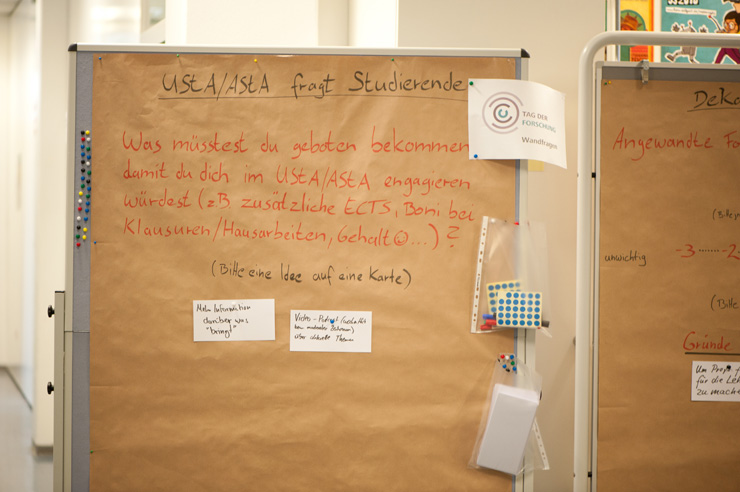 UStA/AStA fragt Studierende
TAG DER
FORSCHUNG
Wandfragen
Was müsstest du geboten bekommen
damit du dich im UStA/AStA engagieren
würdest (zB. zusätzliche ECTS, Boni bei
Klausuren/Hausarbeiten, Gehalt ☺...)?
(Bitte eine Idee auf eine Karte)
Mehr Information
darüber was
"bringt"
Video-Podcast
über aktuelle Themen
Angewandte
unwichtig
-3 ....... -2
(Bitte
Gründe
für die
zu mache